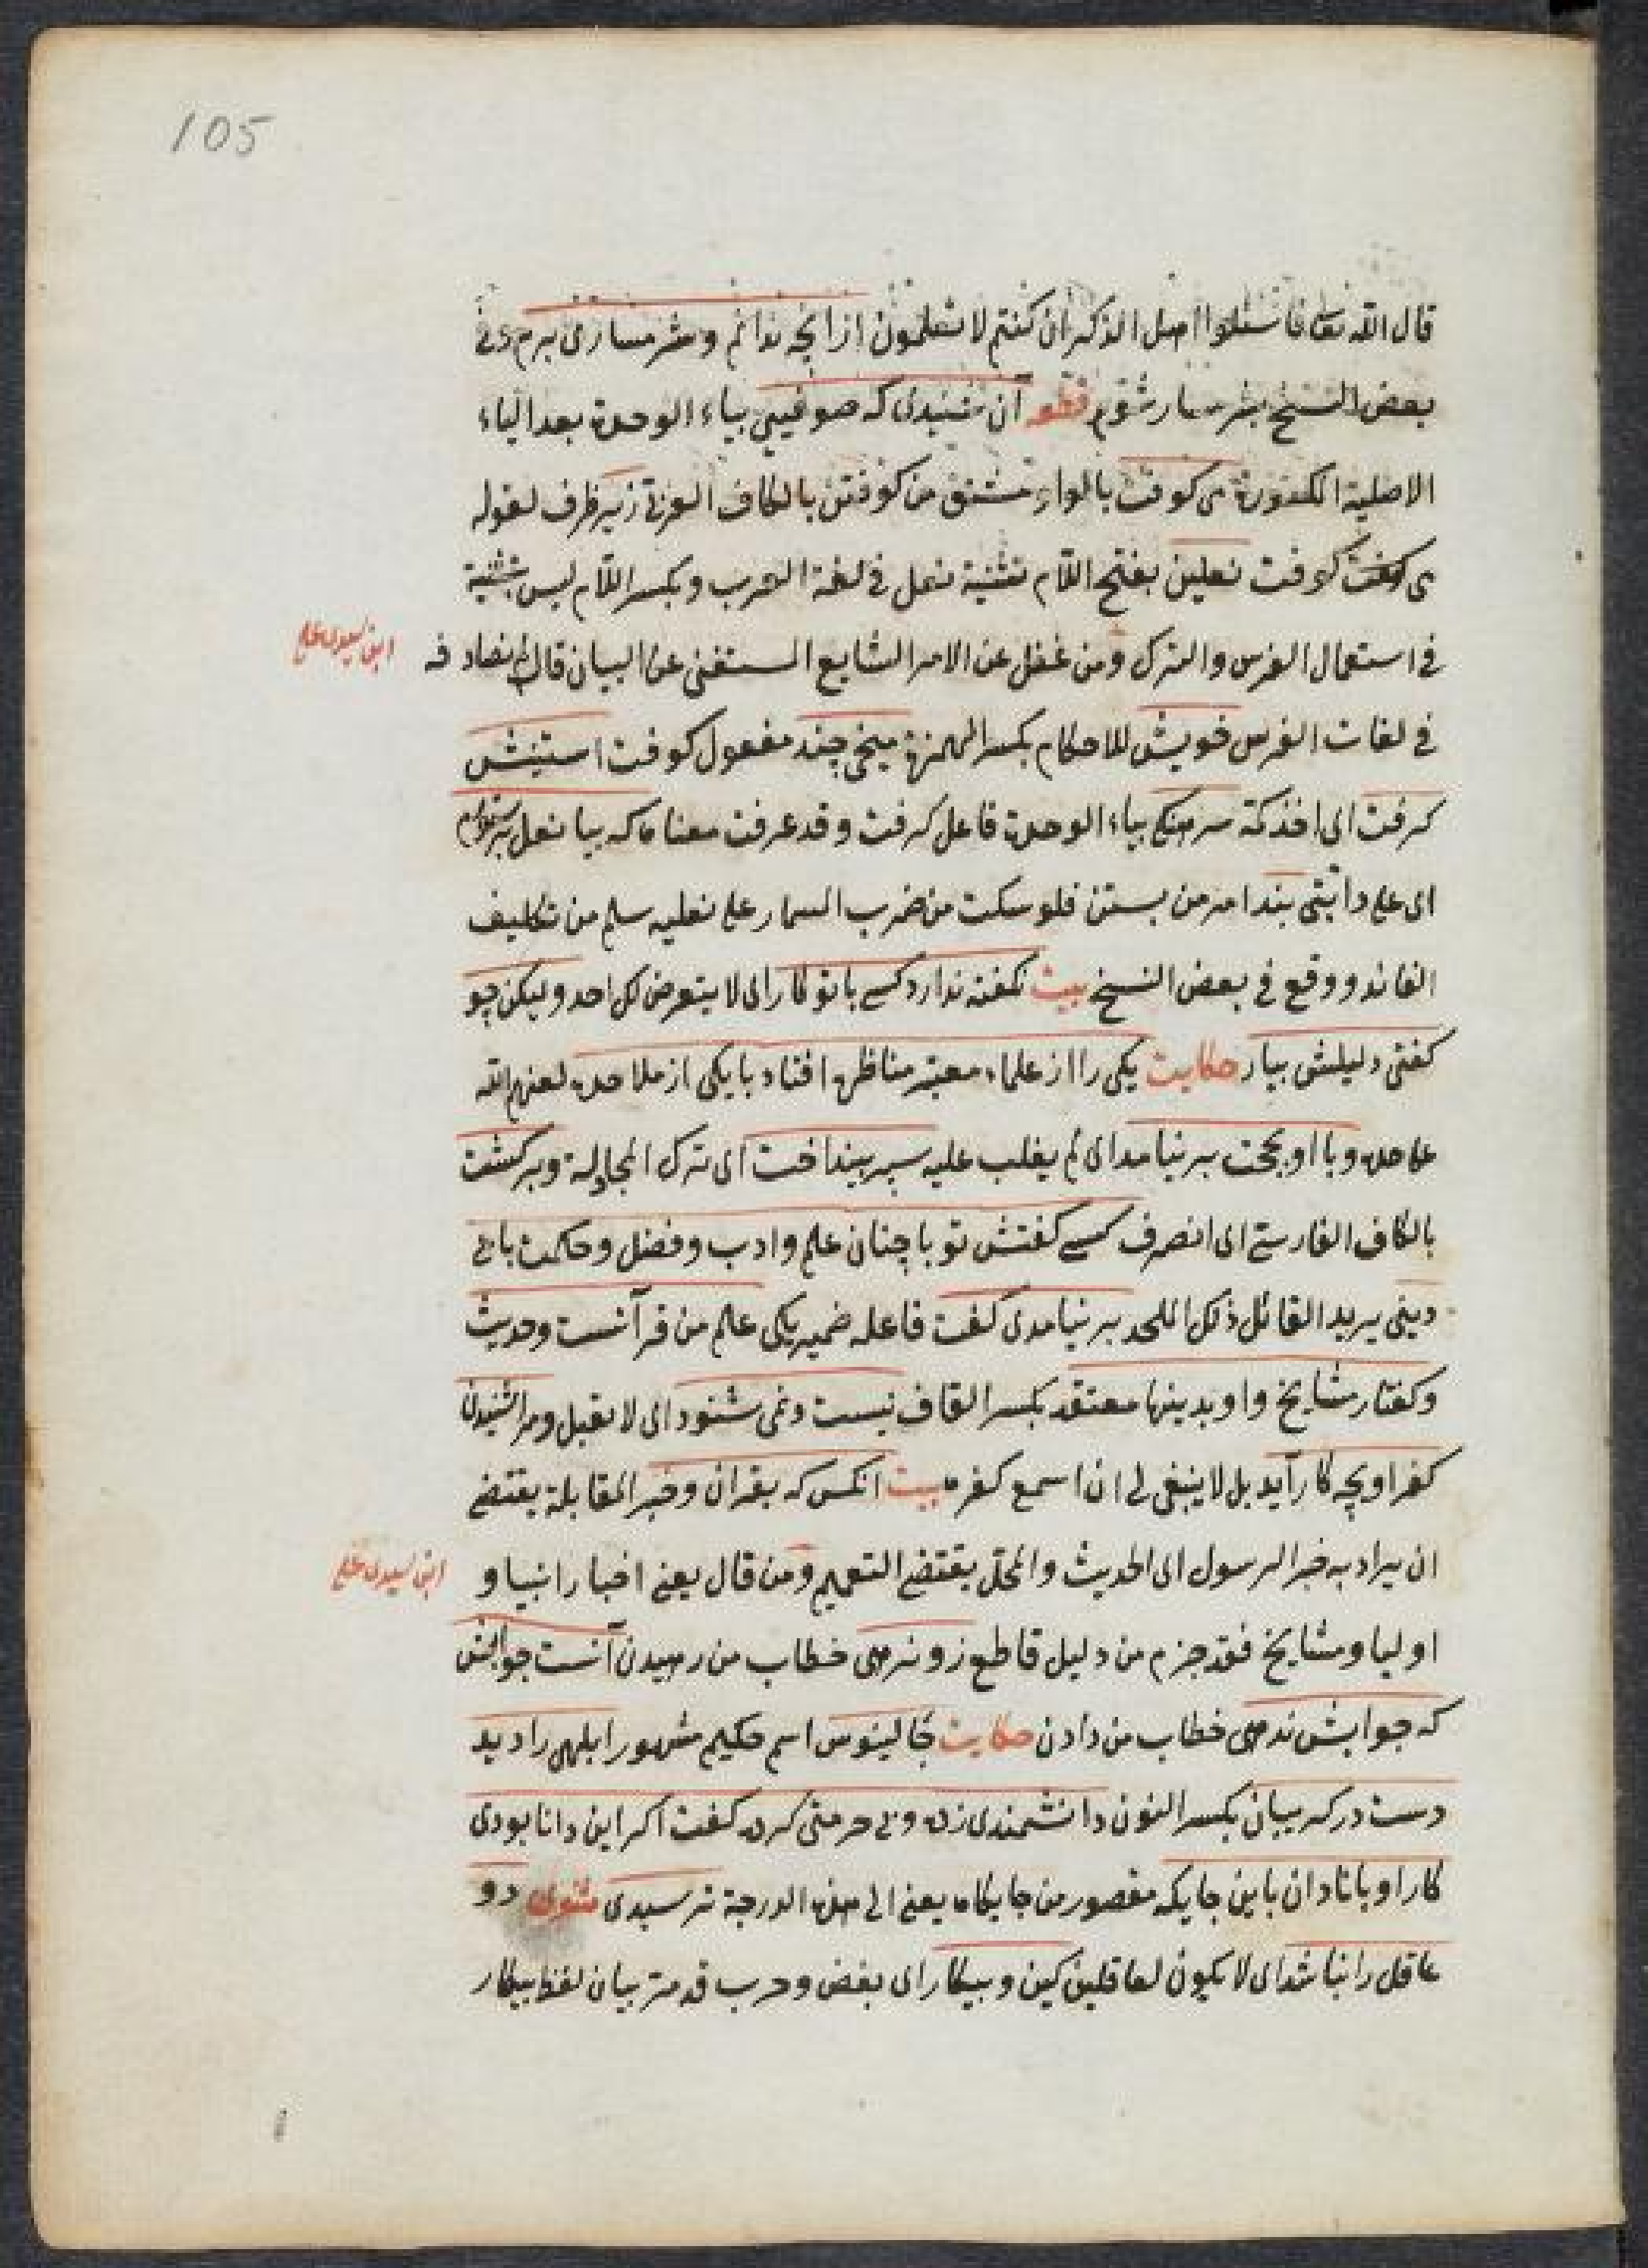 105
قال الله تعالى فاسئلوا اهل الذكر ان كنتم لا تعلمون ازانچه ندانم وشرمسارى برم وفى
بعض النسخ شرمسار شوم قطعه آن شنيدى كه صوفيى بياء الوحدة بعد الياء
الاصلية المكسورة مى كوفت بالواو مشتق من كوفتن بالكاف العربى زير ظرف لقوله
مى كوفت نعلين بفتح اللام تثنية نعل فى لغة العرب وبكسر اللام ليس بتثنية
فى استعمال الفرس والترك ومن غفل عن الامر الشايع المستغنى عن البيان قال
ابن سيدى على
فى لغات الفرس خويش للاحكام بكسر الهمزة ميخى چند مفعول كوفت استينش
كرفت اى اخذ كمّه سرهنكى بياء الوحدة فاعل كرفت وقد عرفت معناه كه بيا نعل بر ستورم
اى على دابتى بند امر من بستن فلو سكت من ضرب المسمار على نعليه سلم من تكليف
القائد ووقع فى بعض النسخ بيت نكفته ندارد كسى با تو كار اى لا يتعرض لك احد وليكن چو
كفتى دليلش بيار حكايت يكى را از علماء معتبر مناظره افتاد با يكى از ملاحده لعنهم الله
على حده وبا او بحجت بر نيامد اى لم يغلب عليه سپر بينداخت اى ترك المجادلة وبركشت
بالكاف الفارسى اى انصرف كسى كفتش تو با چنان علم وادب وفضل وحكمت با بى
دينى يريد القائل ذلك الملحد بر نيامدى كفت فاعله ضمير يكى علم من قرآنست وحديث
وكفتار مشايخ واو بدينها معتقد بكسر القاف نيست ونمى شنود اى لا يقبل ومرا شنيدن
كفر او بچه كار آيد بل لا ينبغى لى ان اسمع كفره بيت انكس كه بقران وخبر المقابلة يقتضى
ان يراد به خبر الرسول اى الحديث والمحل يقتضى التعميم ومن قال يعنى اخبار انبيا و
ابن سيدى على
اوليا ومشايخ فقد جزم من دليل قاطع زو نرهى خطاب من رهيدن آنست جوابش
كه جوابش ندهى خطاب من دادن حكايت جالينوس اسم حكيم مشهور ابلهى را ديد
دست در كريبان بكسر النون دانشمندى زده وبى حرمتى كرده كفت اكر اين دانا بودى
كار او با نادان باين جايكه مقصور من جايكاه يعنى الى هذه الدرجة نرسيدى مثنوى دو
عاقل را نباشد اى لا يكون لعاقلين كين وپيكار اى بغض وحرب قد مر بيان لفظ پيكار